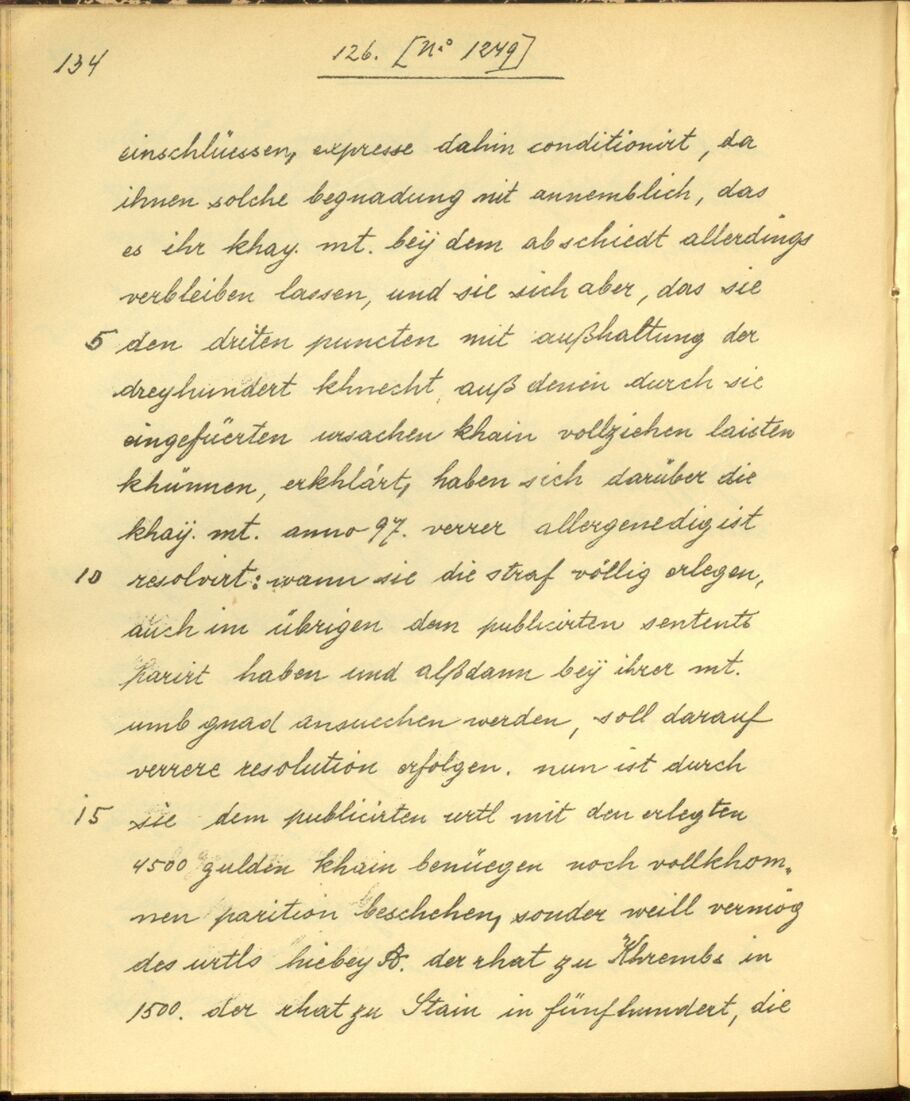 134
126. [No 1249]
einschlüessen, expresse dahin conditionirt, da
ihnen solche begnadung nit annemblich, das
es ihr khay. mt. beÿ dem abschiedt allerdings
verbleiben lassen, und sie sich aber, das sie
5 den driten puncten mit außhaltung der
dreyhundert khnecht, auß denen durch sie
eingefüerten ursachen khain vollziehen laisten
khünnen, erkhlärt, haben sich darüber die
khaÿ. mt. anno 97. verrer allergenedigist
10 resolvirt: wann sie die straf völlig erlegen,
auch im übrigen dem publicirten sentents
parirt haben und alßdann beÿ ihrer mt.
umb gnad ansuechen werden, soll darauf
verrere resolution erfolgen. nun ist durch
15 sie dem publicirten urtl mit den erlegten
4500 gulden khain benüegen noch vollkhom„
nen parition beschehen, sonder weill vermög
des urtls hiebey der rhat zu Khrembs in
1500. der rhat zu Stain in fünfhundert, die